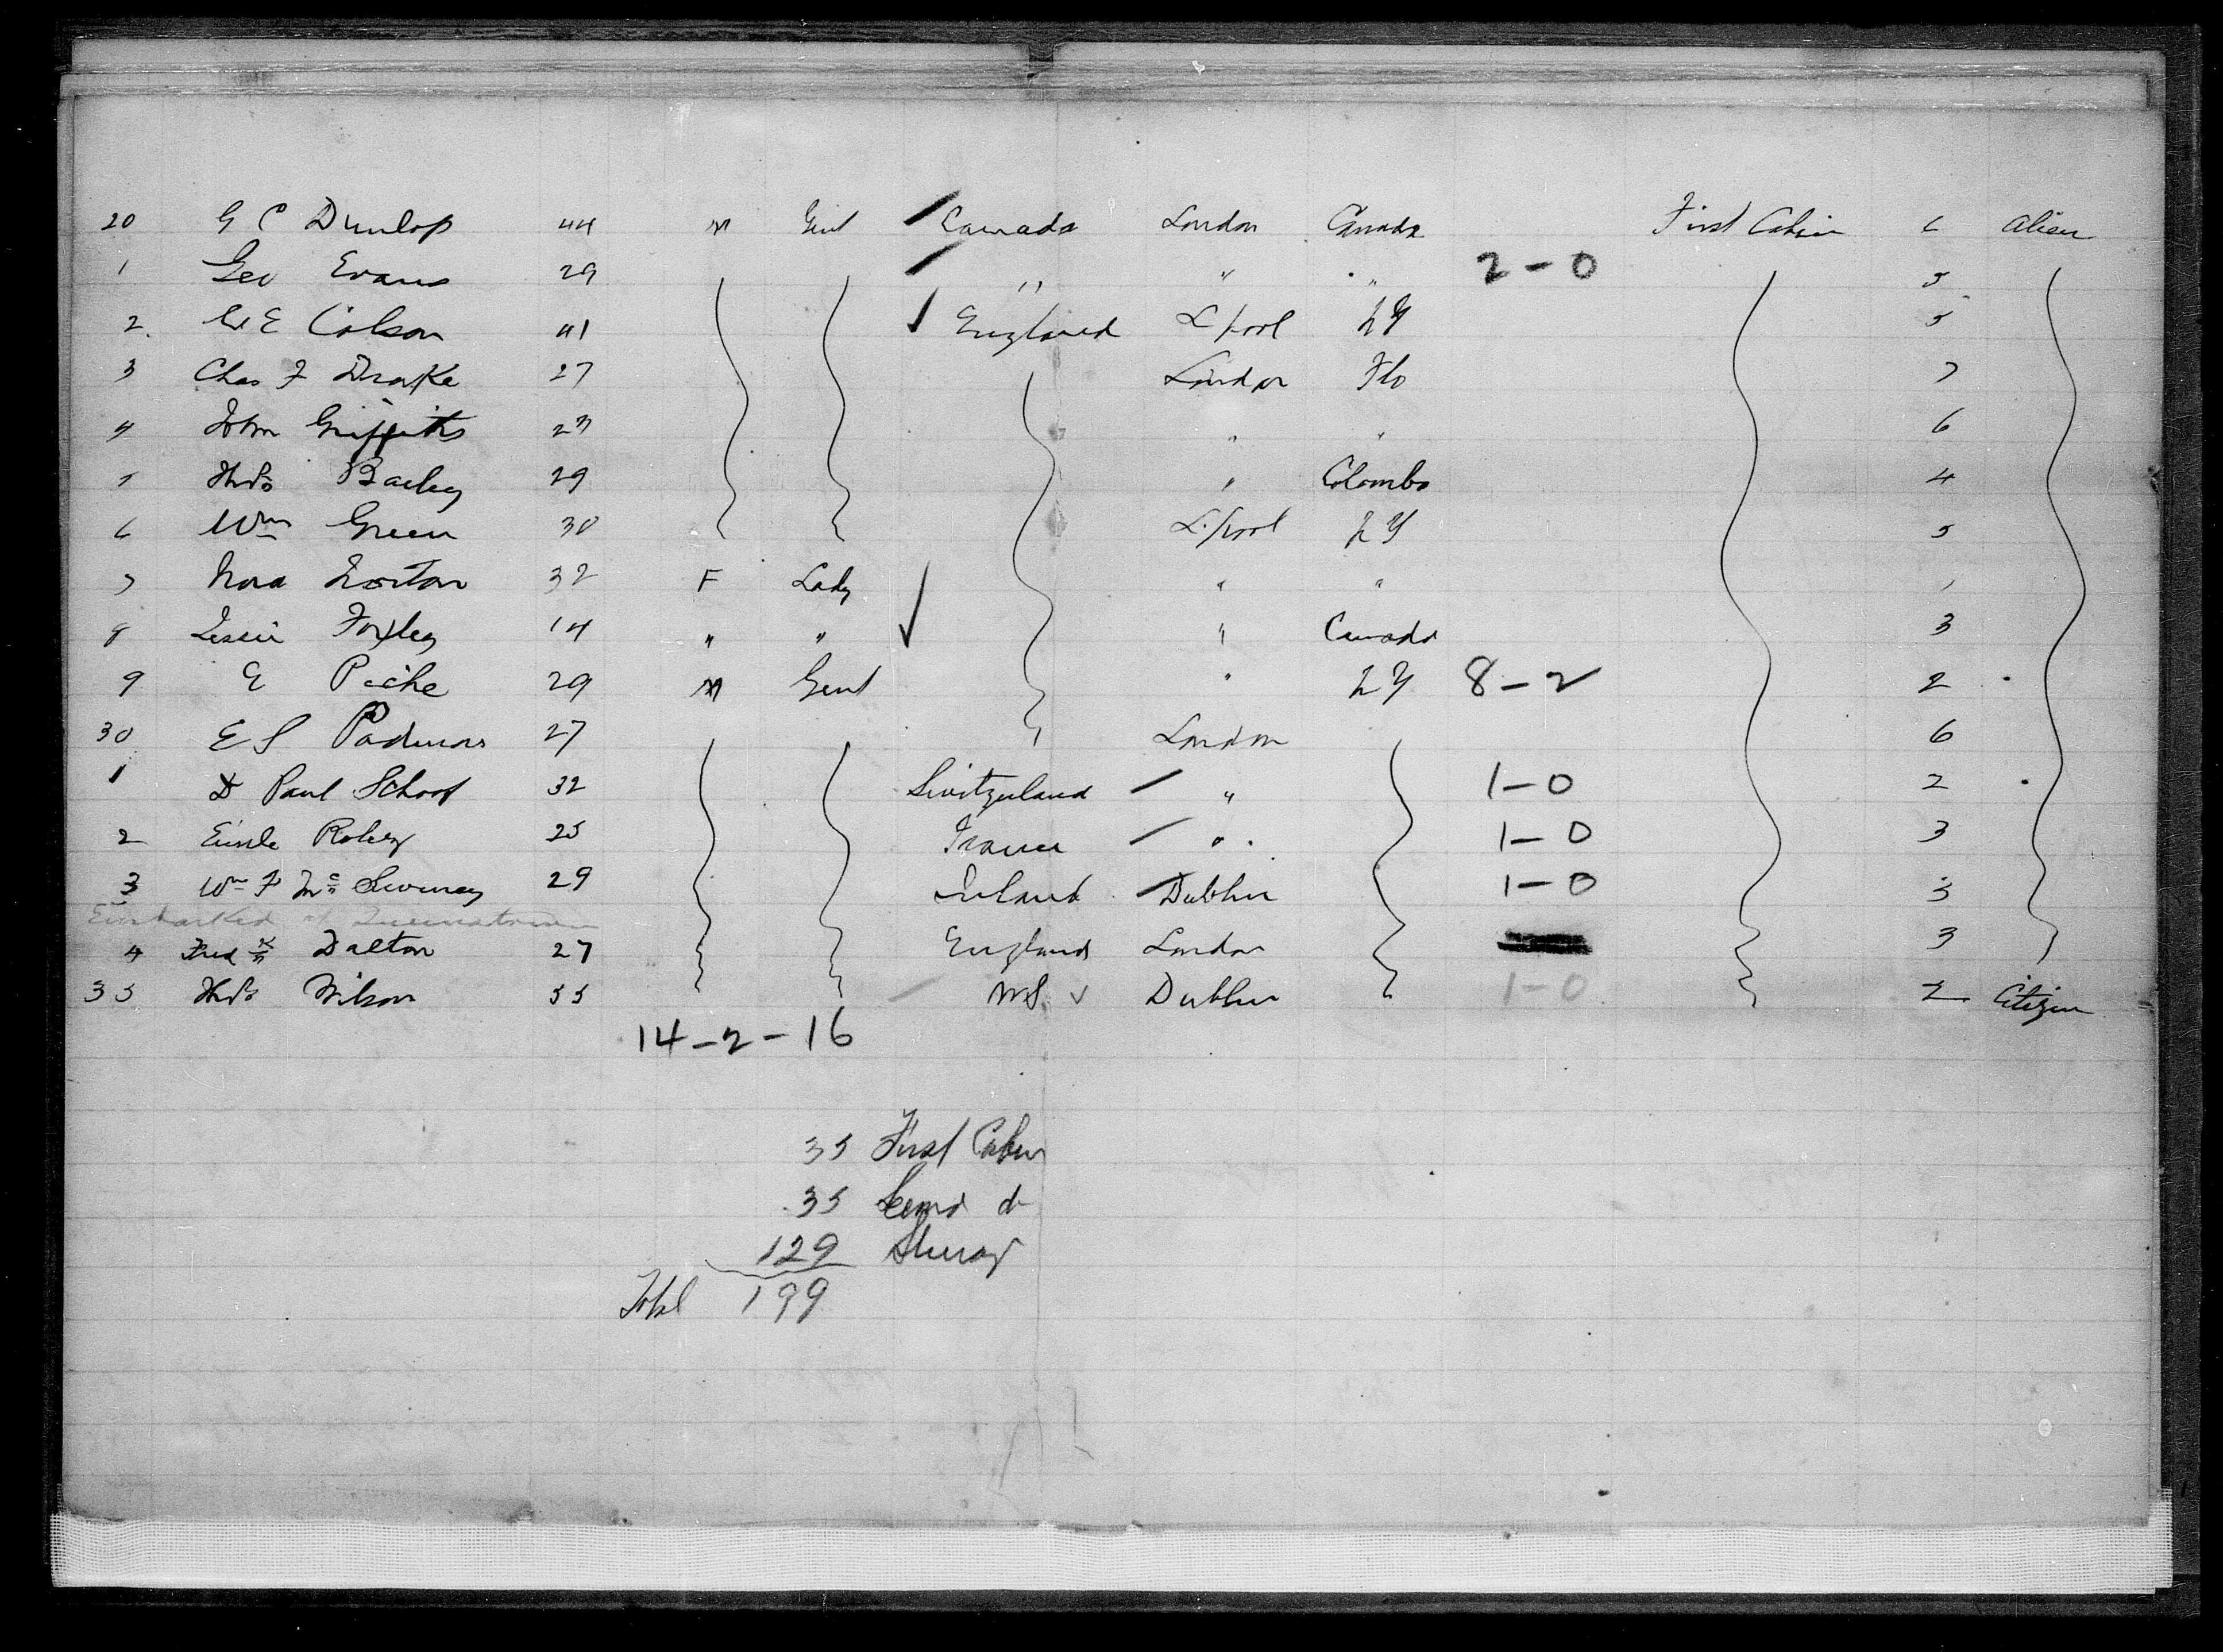 20 G C Dunlop 44 M Gent Canada London Canada First Cabin 6 Alien
1 Geo Evans 29 " " " 2-0 5
2 Colson 41 England L'pool NY 5
3 Chas F Drake 27 London Flo 7
4 John Griffiths 23 " " 6
5 Thos Bailey 29 " Colombo 4
6 Wm Green 30 L'pool NY 5
7 Nora Norton 32 F Lady " " 1
8 Foxley 14 " " " Canada 3
9 E Piche 29 M Gent " NY 8-2 2
30 E S 27 London 6
1 Paul Schoof 32 Switzerland " 1-0 2
2 25 France " 1-0 3
3 Wm F McSweeney 29 Ireland Dublin 1-0 3
Embarked at Queenstown
4 Fredk Dalton 27 England London 3
35 Thos Wilson 55 US Dublin 1-0 2 Citizen
14-2-16
35 First Cabin
35 Second do
129 Steerage
Total 199